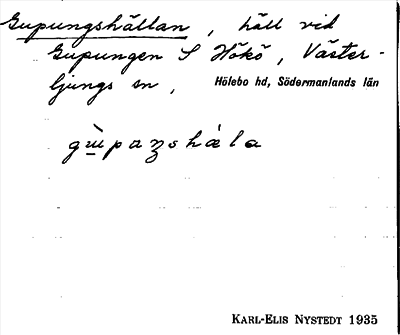 Gupungshällan, häll vid
Gupungen S Hökö, Väster-
ljungs sn, Hölebo hd, Södermanlands län
gɯ̀paŋshàla
KARL-ELIS NYSTEDT 1935